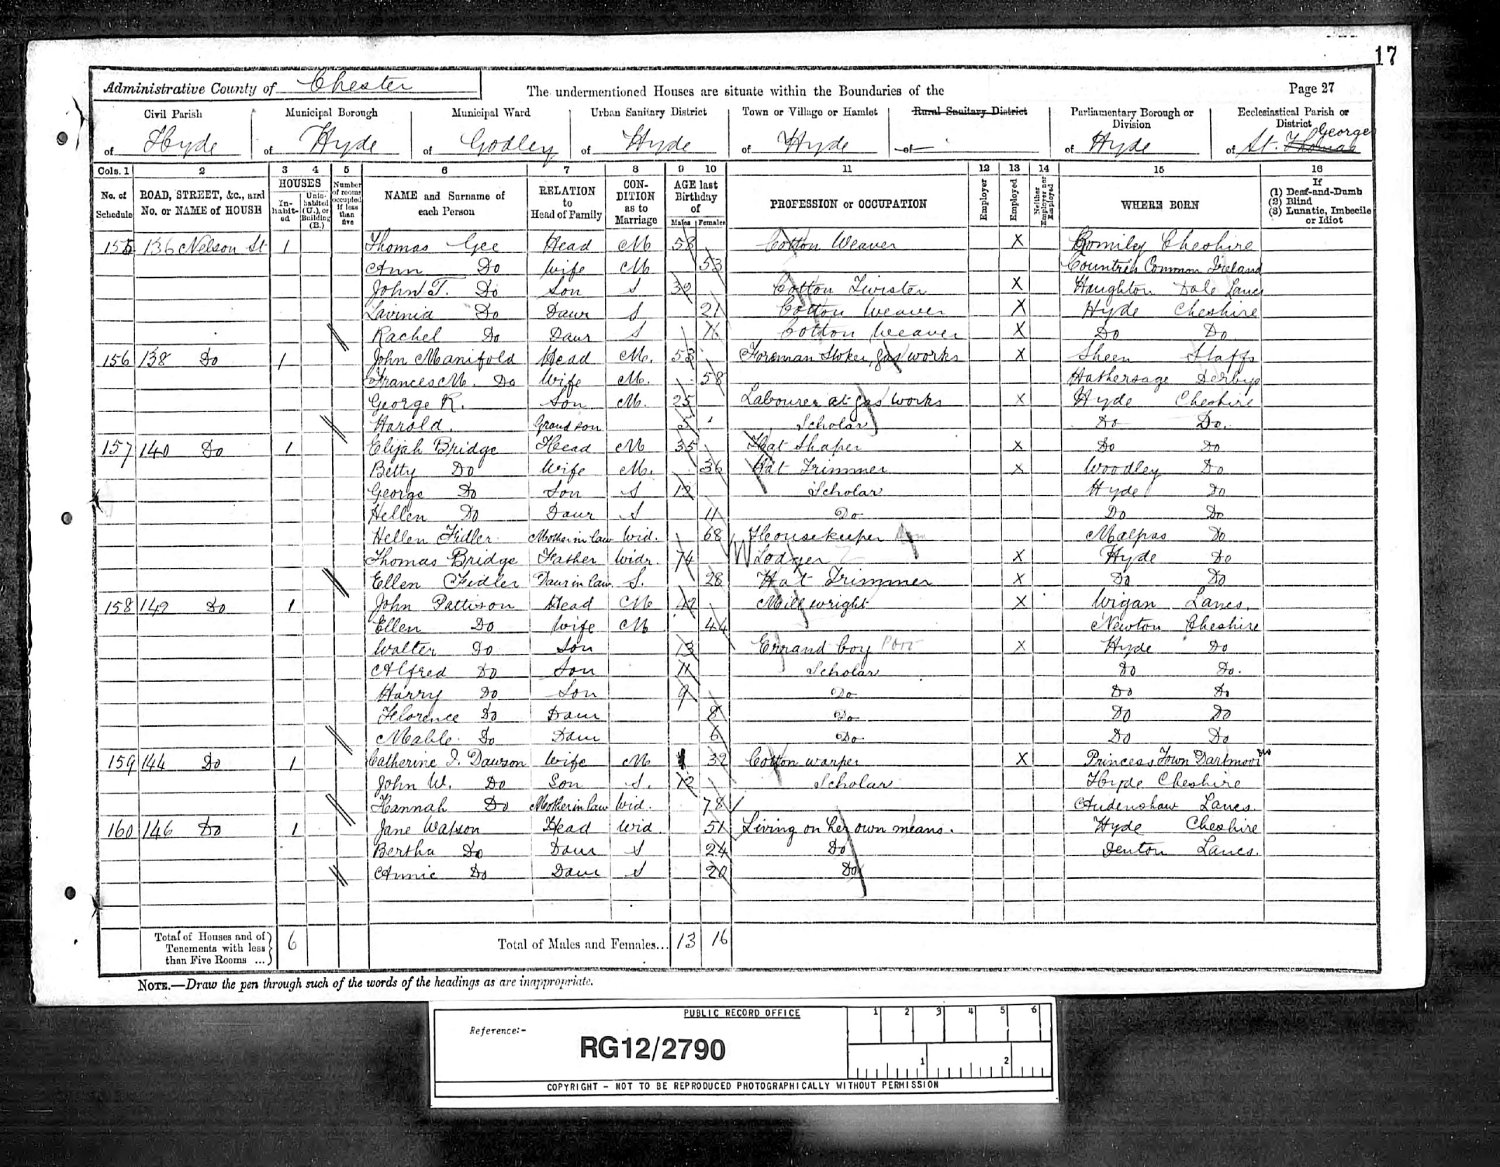 17
Administrative County of Chester The undermentioned Houses are situate within the Boundaries of the Page 27
Civil Parish Municipal Borough Municipal Ward Urban Sanitary District Town or Village or Hamlet Rural Sanitary District Parliamentary Borough or Division Ecclesiastical Parish or District
of Hyde of Hyde of Godley of Hyde of Hyde of of Hyde of St. Thomas George
Cols. 1 2 3 4 5 6 7 8 9 10 11 12 13 14 15 16
No. of Schedule ROAD, STREET, &c., and No. or NAME of HOUSE HOUSES Inhabited Uninhabited (U.), or Building (B.) Number of rooms occupied if less than five NAME and Surname of each Person RELATION to Head of Family CONDITION as to Marriage AGE last Birthday of Males Females PROFESSION or OCCUPATION Employer Employed Neither Employer nor Employed WHERE BORN If (1) Deaf-and-Dumb (2) Blind (3) Lunatic, Imbecile or Idiot
155 136 Nelson St 1 Thomas Gee Head M 58 Cotton Weaver X Romiley Cheshire
Ann Do Wife M 53 Common Ireland
John T. Do Son S 32 Cotton Twister X Haughton Dale Lancs
Lavinia Do Daur S 21 Cotton Weaver X Hyde Cheshire
Rachel Do Daur S 16 Cotton Weaver X Do Do
156 138 Do 1 John Manifold Head M. 53 Foreman Stoker, gas works X Sheen Staffs
Frances M. Do Wife M. 58 Hathersage Derbys
George R. Son M. 25 Labourer at gas works X Hyde Cheshire
Harold. Grandson Scholar Do Do.
157 140 Do 1 Elijah Bridge Head M 35 Hat Shaper X Do Do
Betty Do Wife M. 36 Hat Trimmer X Woodley Do
George Do Son S 12 Scholar Hyde Do
Hellen Do Daur S 11 Do Do Do
Hellen Fidler Mother in law Wid. 68 Housekeeper Malpas Do
Thomas Bridge Father Widr. 74 Lodger X Hyde Do
Ellen Fidler Daur in law S. 28 Hat Trimmer X Do Do
158 142 Do 1 John Pattison Head M 42 Millwright X Wigan Lancs.
Ellen Do Wife M 44 Newton Cheshire
Walter Do Son 13 Errand boy X Hyde Do
Alfred Do Son 11 Scholar Do Do.
Harry Do Son 9 Do Do Do
Florence Do Daur 8 Do Do Do
Mable. Do Daur 6 Do. Do Do
159 144 Do 1 Catherine J. Dawson Wife M 32 Cotton warper X Princess Town Dartmoor
John W. Do Son S. 12 Scholar Hyde Cheshire
Hannah Do Mother in law Wid. 78 Audenshaw Lancs.
160 146 Do 1 Jane Watson Head Wid 51 Living on her own means. Hyde Cheshire
Bertha Do Daur S 24 Do Denton Lancs.
Annie Do Daur S 20 Do
Total of Houses and of Tenements with less than Five Rooms ... 6 Total of Males and Females... 13 16
NOTE.—Draw the pen through such of the words of the headings as are inappropriate.
PUBLIC RECORD OFFICE 1 2 3 4 5 6
Reference:-
RG12/2790
1 2
COPYRIGHT - NOT TO BE REPRODUCED PHOTOGRAPHICALLY WITHOUT PERMISSION